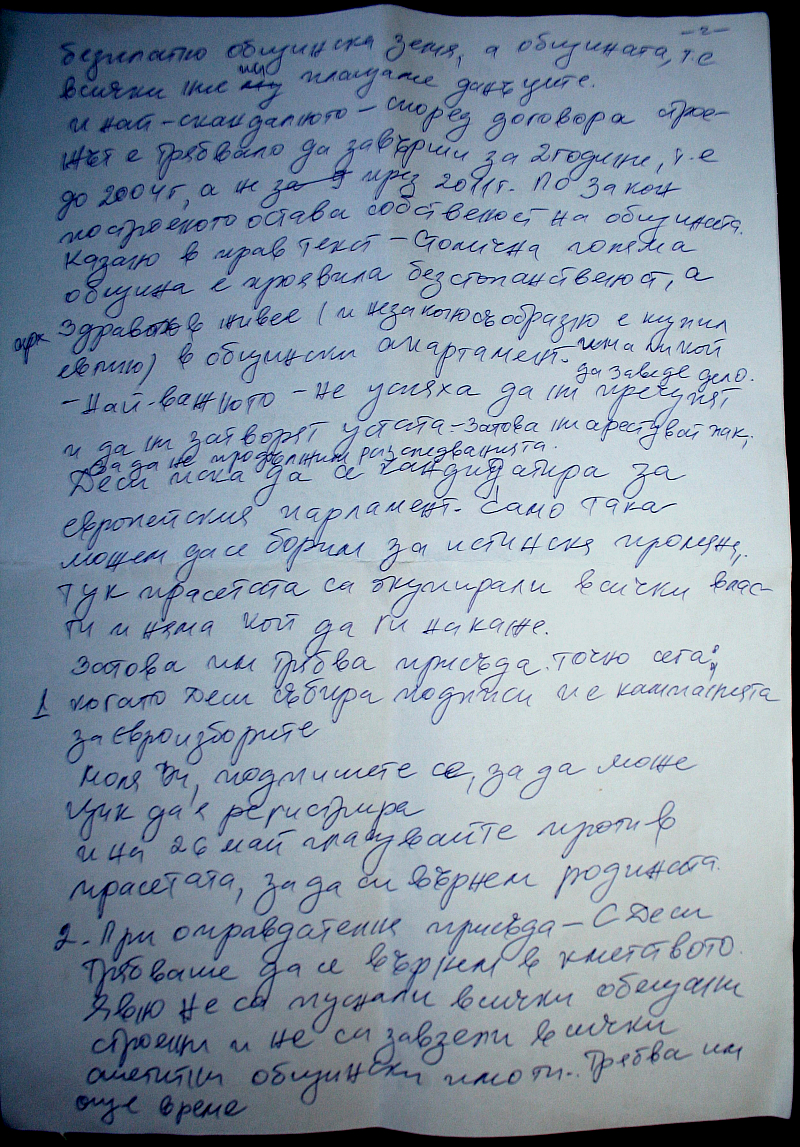 -2-
безплатно общинска земя, а общината, т.е
всички ние ни плащаме данъците.
и най-скандалното - според договора строе-
жът е трябвало да завърши за 2 години, т.е
до 2004г, а не за 9 през 2011г. По закон
построеното остава собственост на общината.
Казано в прав текст - Столична голяма
община е проявила безстопанственост, а
арх Здравков живее (и незаконосъобразно е купил
евтино) в общински апартамент. и на никой
да заведе дело.
- Най-важното - не успяха да ни пречупят
и да ни затворят устата - Затова ни арестуват пак,
за да не продължим разследванията.
Деси иска да се кандидатира за
европейския парламент. Само така
можем да се борим за истинска промяна,
тук прасетата са окупирали всички влас-
ти и няма кой да ги накаже.
Затова им трябва присъда точно сега;
1 когато Деси събира подписи и е кампанията
за Евроизборите
Моля Ви, подпишете се, за да може
Цик да я регистрира
и на 26 май гласувайте против
прасетата, за да си върнем родината.
2. При оправдателна присъда - С Деси
Трябваше да се върнем в кметството.
Явно не са пуснали всички обещани
строежи и не са завзели всички
апетитни общински имоти. Трябва им
още време